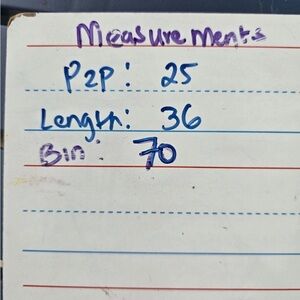 Measurements
P2P: 25
Length: 36
Bin: 70